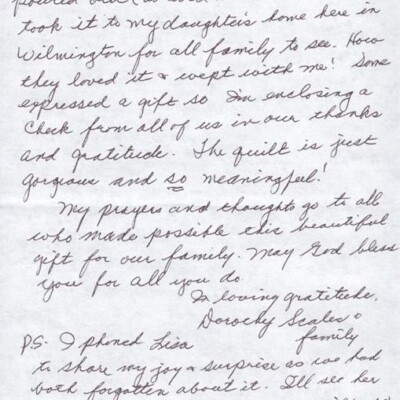 took it to my daughter's home here in
Wilmington for all family to see. How
they loved it & wept with me! Some
expressed a gift so I'm enclosing a
Check from all of us in our thanks
and gratitude. The quilt is just
gorgeous and so meaningful!
My prayers and thoughts go to all
who made possible this beautiful
gift for our family. May God bless
you for all you do
In loving gratitude,
Dorothy Scales &
family
P.S. I phoned Lisa
to share my joy & surprise as we had
both forgotten about it. I'll see her